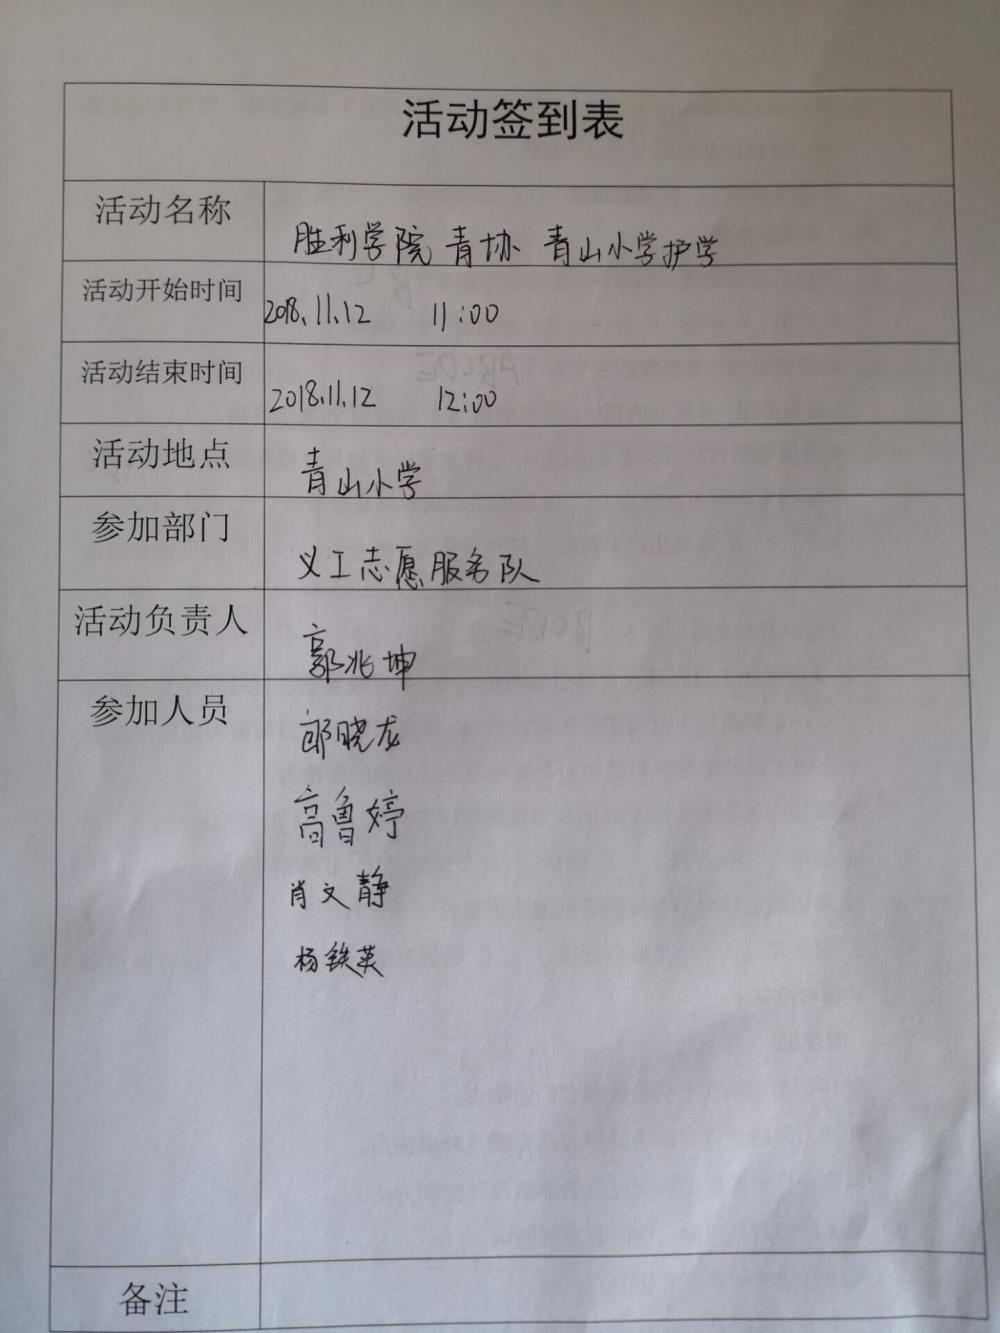 活动签到表
活动名称
胜利学院 青协 青山小学护学
活动开始时间
2018.11.12 11:00
活动结束时间
2018.11.12 12:00
活动地点
青山小学
参加部门
义工志愿服务队
活动负责人
郭兆坤
参加人员
郎晓龙
高鲁婷
肖文静
杨铁英
备注